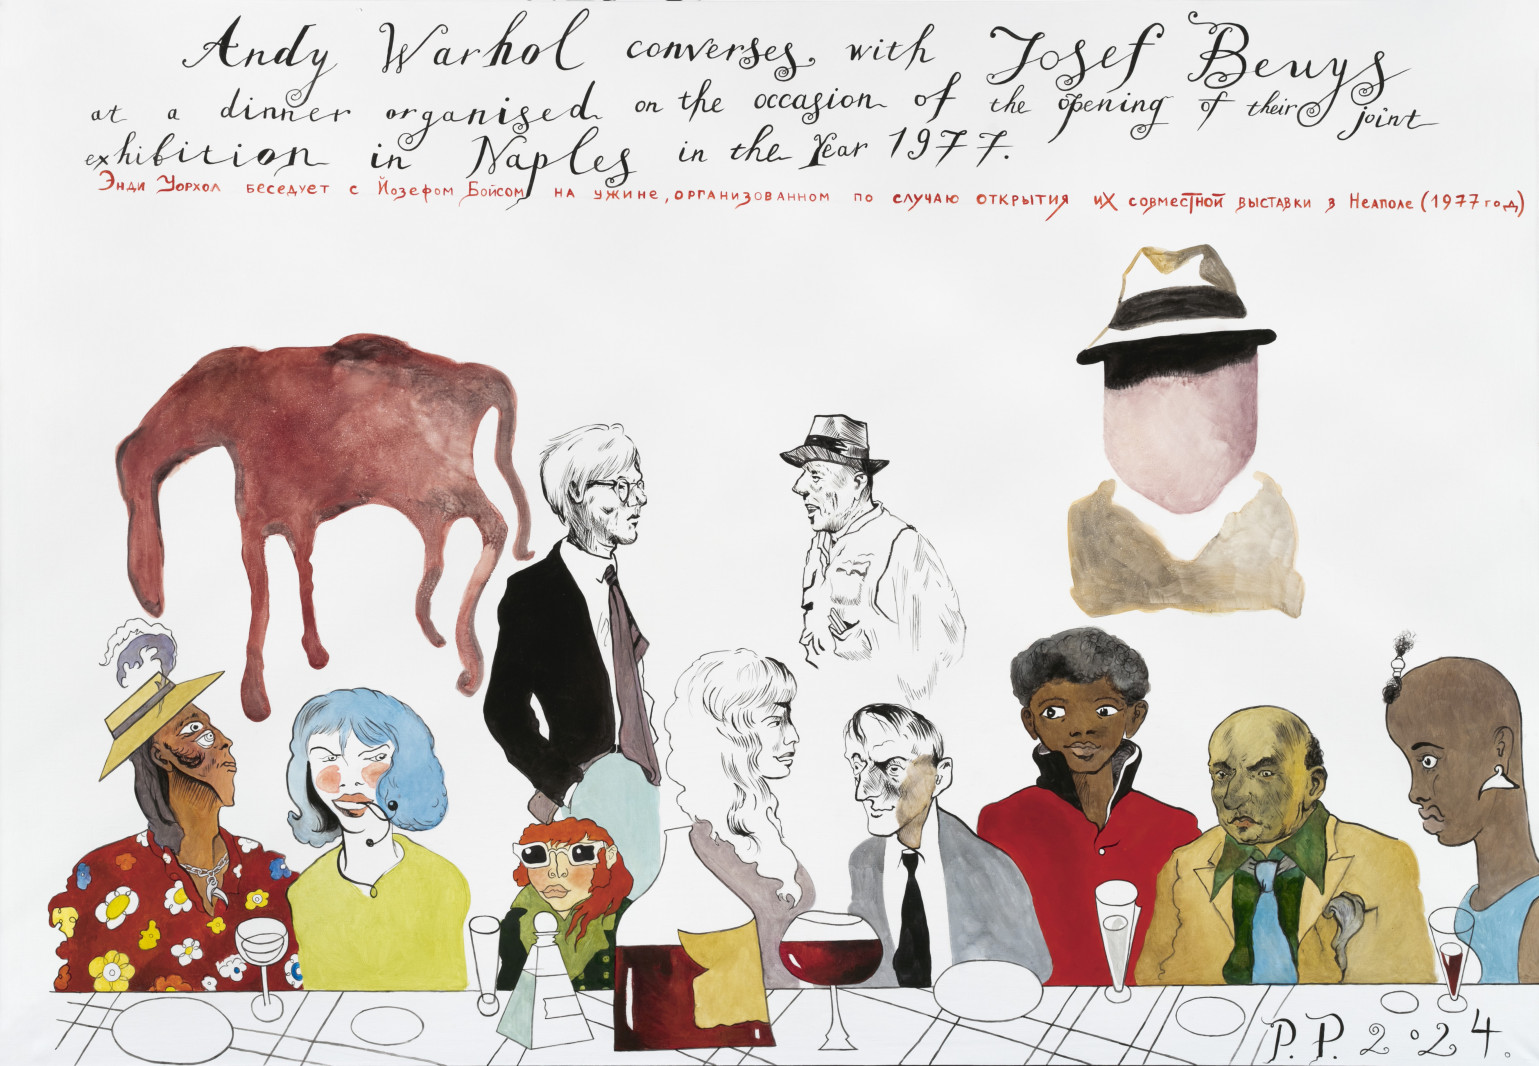 Andy Warhol converses with Josef Beuys
at a dinner organised on the occasion of the opening of their joint
exhibition in Naples in the Year 1977.
Энди Уорхол беседует с Йозефом Бойсом на ужине, организованном по случаю открытия их совместной выставки в Неаполе (1977 год)
P. P. 2024.